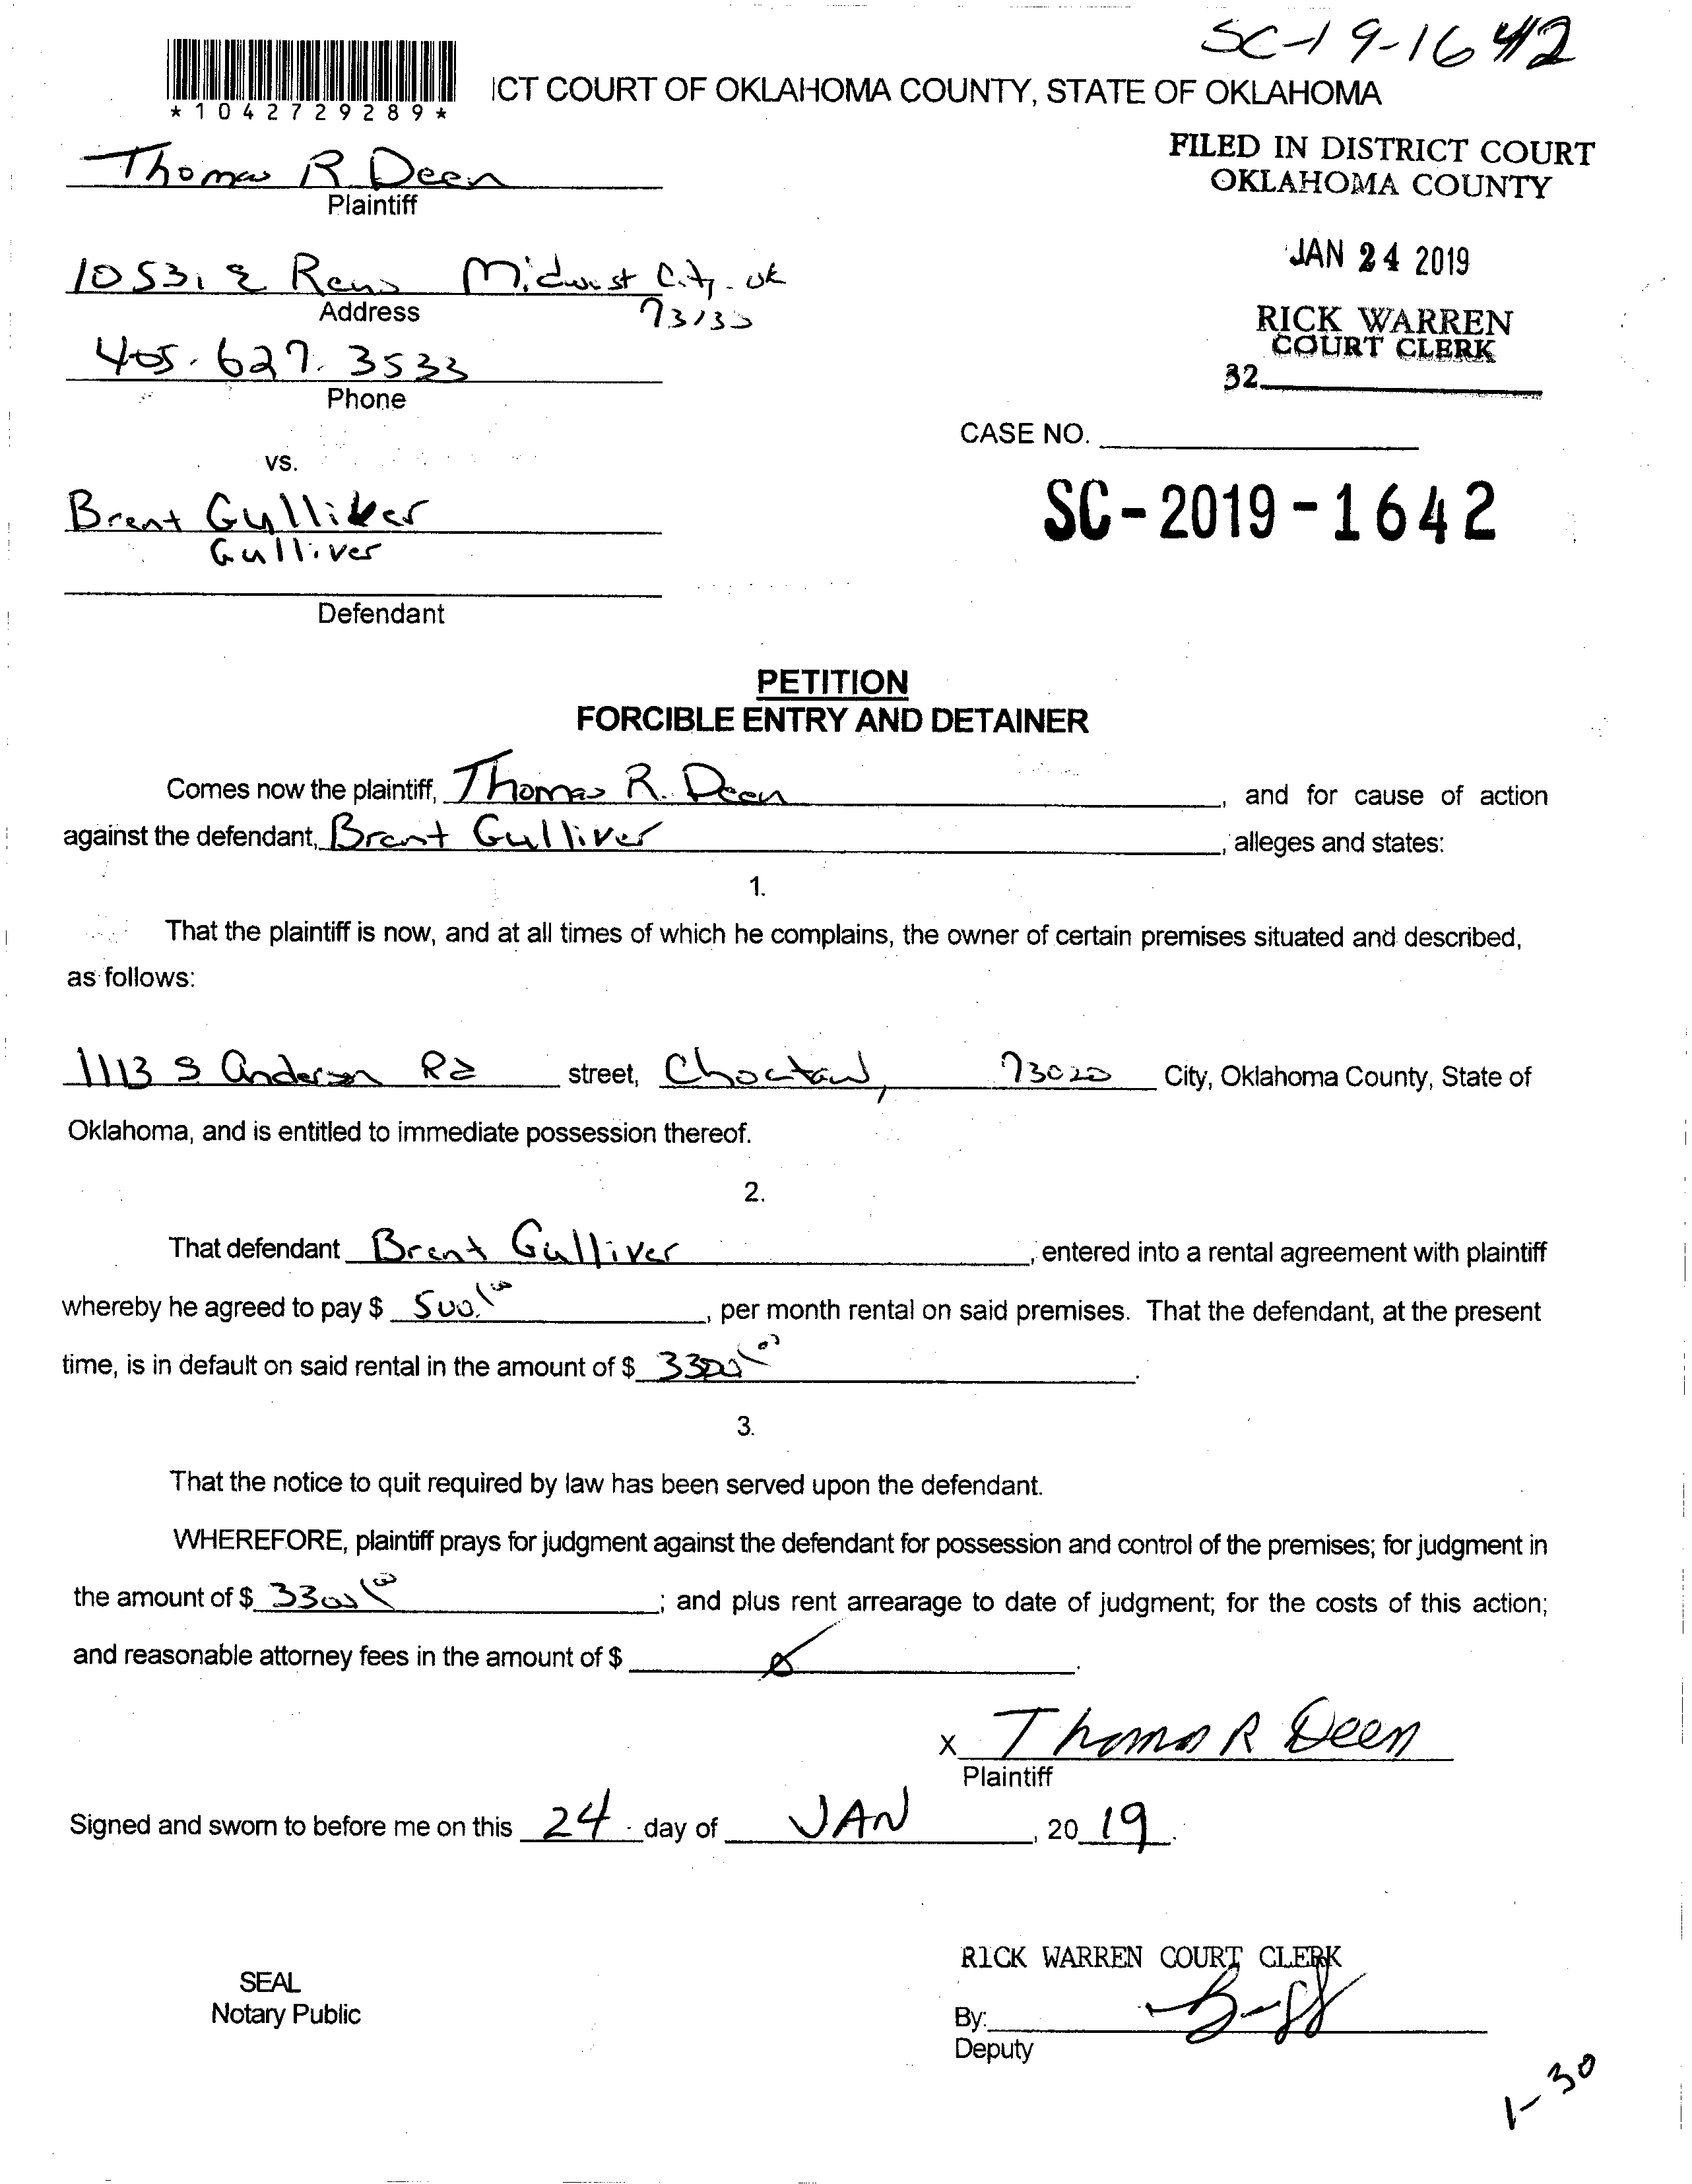 SC-19-1642
*1042729289*
ICT COURT OF OKLAHOMA COUNTY, STATE OF OKLAHOMA
FILED IN DISTRICT COURT
OKLAHOMA COUNTY
Thomas R Deen
Plaintiff
JAN 24 2019
10531 E Reno Midwest City. ok
73130
Address
RICK WARREN
COURT CLERK
32
405. 627. 3533
Phone
CASE NO.
vs.
SC-2019-1642
Brent Gulliver
Gulliver
Defendant
PETITION
FORCIBLE ENTRY AND DETAINER
Comes now the plaintiff, Thomas R. Deen, and for cause of action
against the defendant, Brent Gulliver, alleges and states:
1.
That the plaintiff is now, and at all times of which he complains, the owner of certain premises situated and described,
as follows:
1113 S Anderson Rd street, Choctaw, 73020 City, Oklahoma County, State of
Oklahoma, and is entitled to immediate possession thereof.
2.
That defendant Brent Gulliver, entered into a rental agreement with plaintiff
whereby he agreed to pay $ 500.00, per month rental on said premises. That the defendant, at the present
time, is in default on said rental in the amount of $ 3300.00.
3.
That the notice to quit required by law has been served upon the defendant.
WHEREFORE, plaintiff prays for judgment against the defendant for possession and control of the premises; for judgment in
the amount of $ 3300.00; and plus rent arrearage to date of judgment; for the costs of this action;
and reasonable attorney fees in the amount of $ 0.
X Thomas R Deen
Plaintiff
Signed and sworn to before me on this 24 day of JAN, 2019.
RICK WARREN COURT CLERK
SEAL
Notary Public
By:
Deputy
1-30